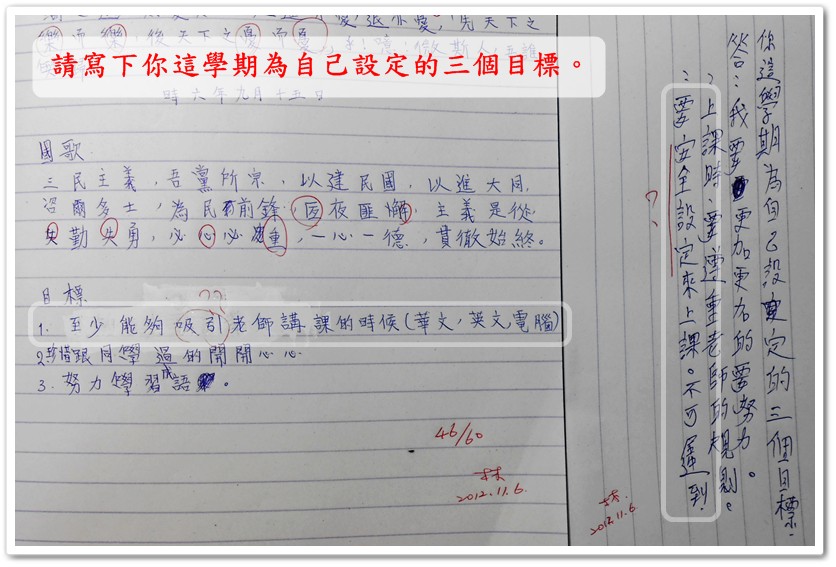 憂,退亦憂,先天下之
樂而樂,後天下之憂而憂 噫!微斯人,吾誰
請寫下你這學期為自己設定的三個目標。
時六年九月十五日
國歌
三民主義,吾黨所宗,以建民國,以進大同,
咨爾多士,為民前鋒,夜匪懈,主義是從,
失勤失勇,必心必重,一心一德,貫徹始終。
目標
??
1. 至少能夠吸引老師講課的時候(華文,英文,電腦)
2. 跟同學過的開開心心
3. 努力學習成語。
46/60
林
2012.11.6.
你這學期為自己設定的三個目標.
答:我要更加更加的要努力。
:上課時,要遵重老師的規則。
:要安全設定來上課。不可遲到.
?
2012.11.6.